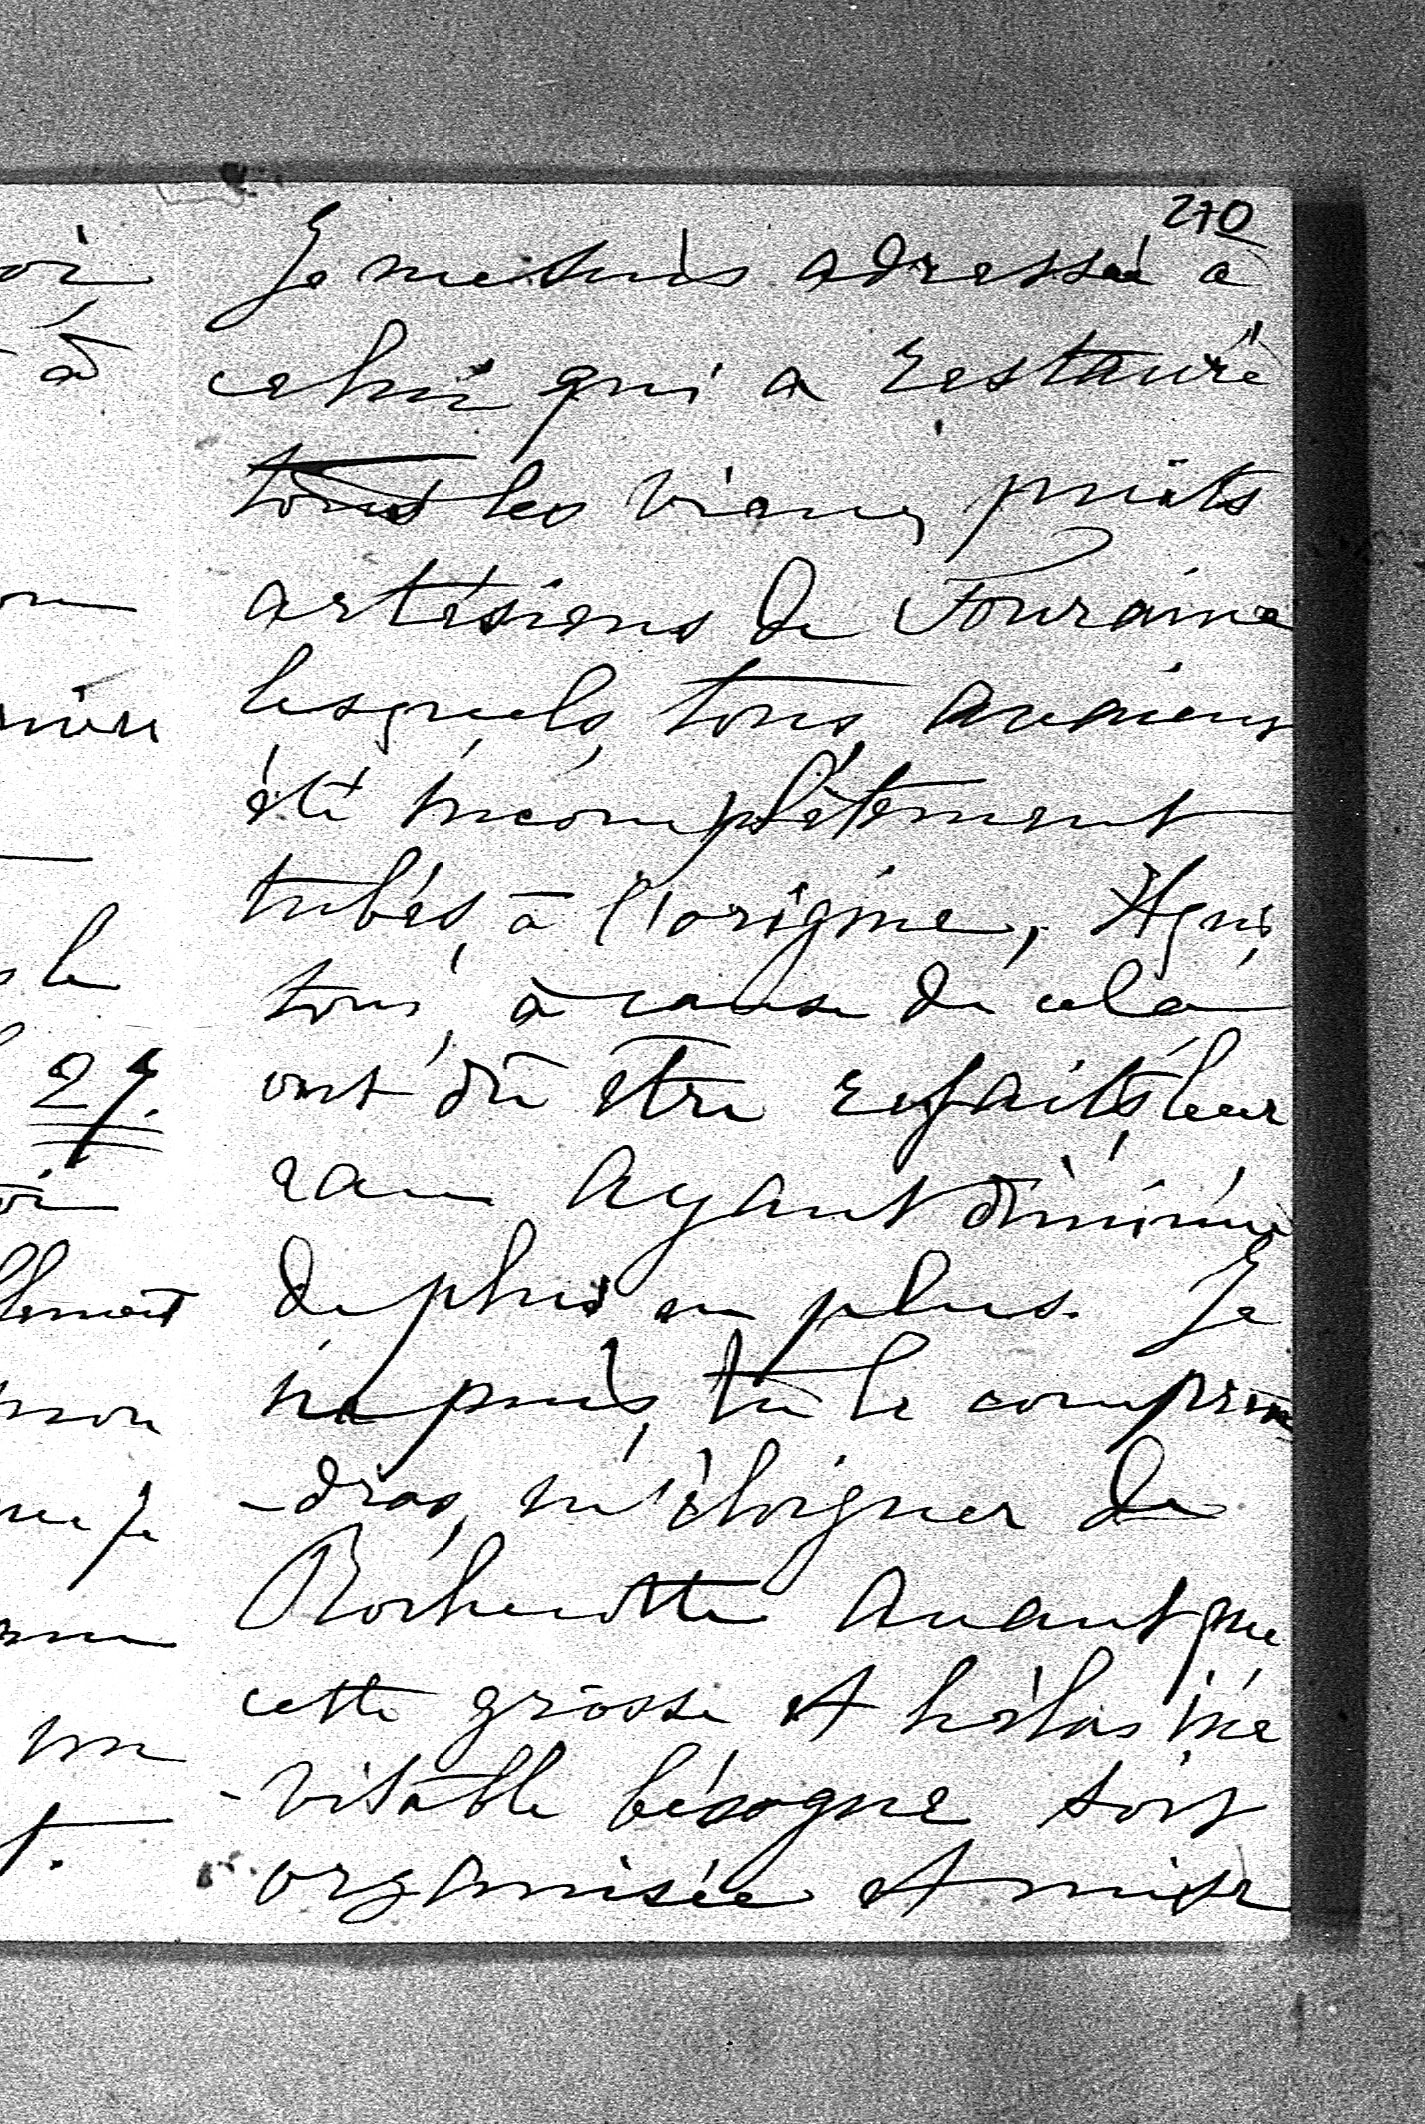 270
Je me suis adressé à
celui qui a restauré
tous les vieux puits
artésiens de Touraine
lesquels, tous, avaient
été incomplètement
tubés, à l'origine, et qui,
tous, à cause de cela
ont dû être refaits, leur
eau ayant diminué
de plus en plus. Je
ne puis, tu le compren
-dras, m'éloigner de
Rochecotte avant que
cette grosse et hélas iné
-vitable besogne soit
organisée et mise
à
le
27.
mon
un